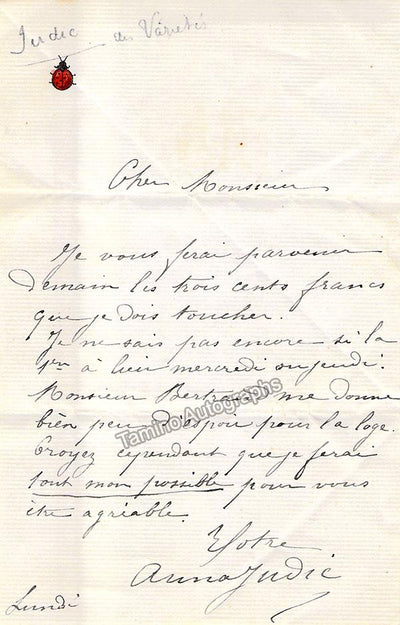 Judic des Variétés
Cher Monsieur
Je vous ferai parvenir
demain les trois cents francs
que je dois toucher.
Je ne sais pas encore si la
1ère à lieu mercredi ou jeudi.
Monsieur Bertrand me donne
bien peu d'espoir pour la loge.
Croyez cependant que je ferai
tout mon possible pour vous
être agréable.
Votre
Anna Judic
Lundi
Tamino Autographs